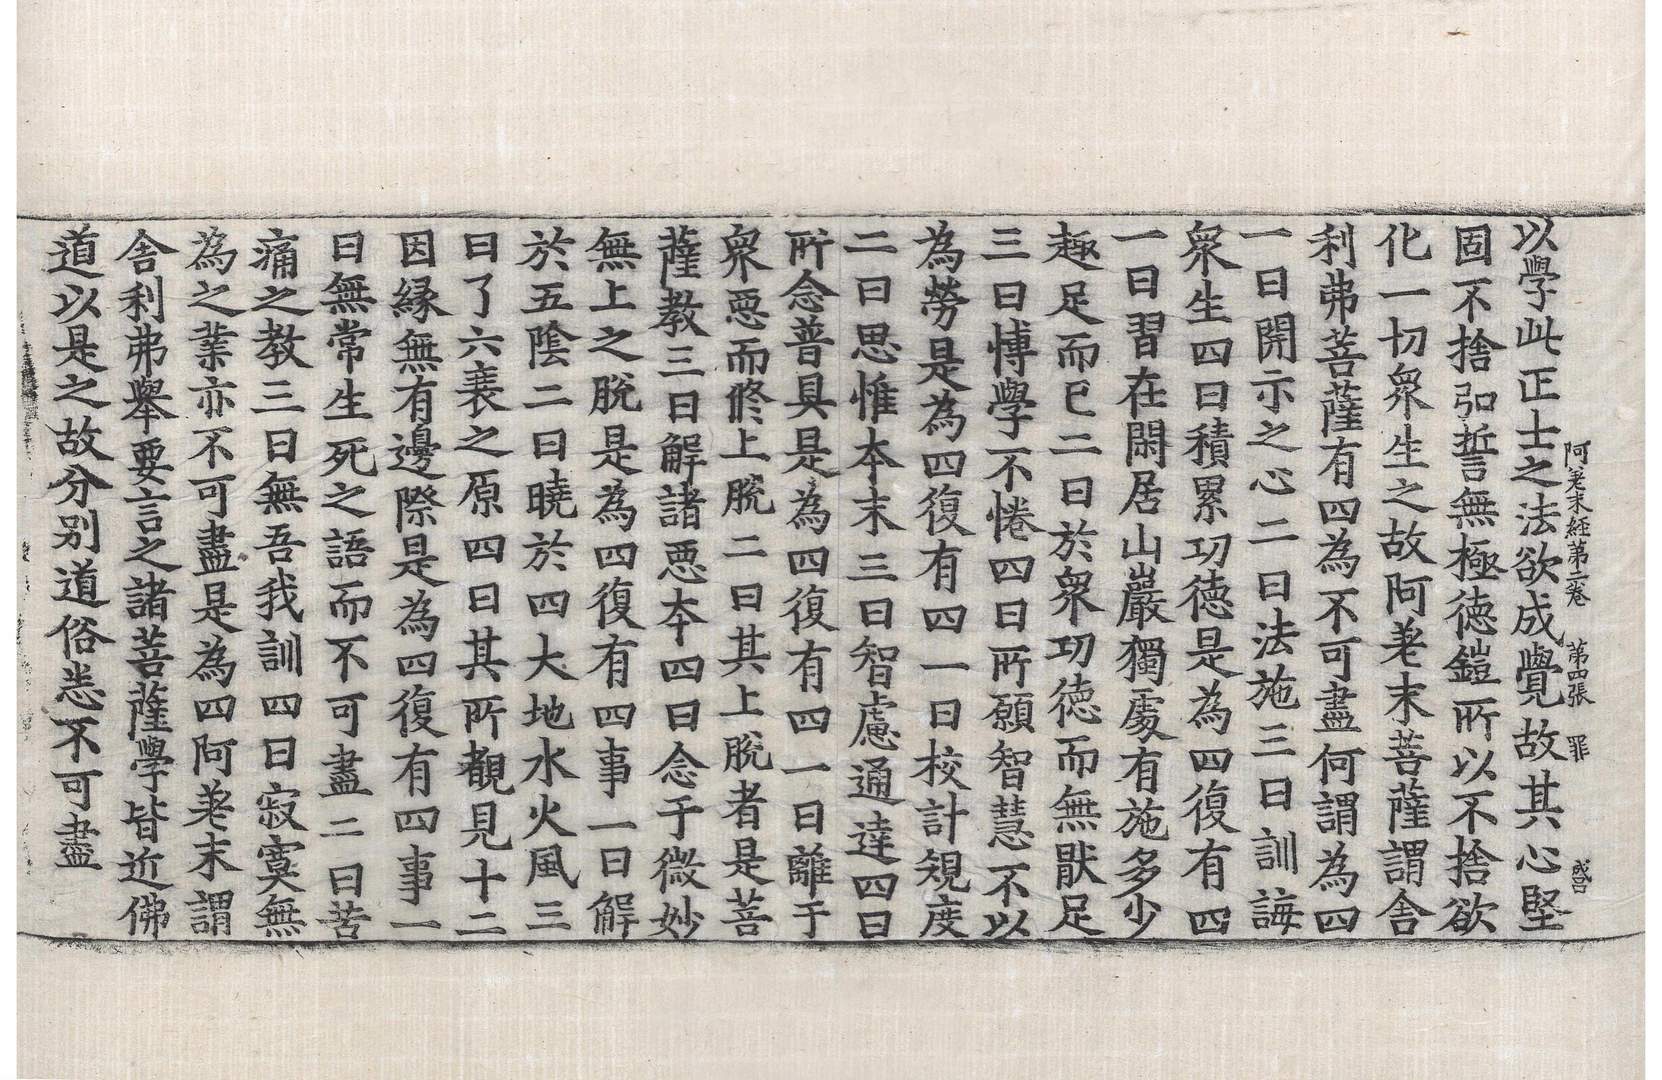 阿差末經第二卷　第四張　罪
以學此正士之法欲成覺故其心堅
固不捨弘誓無極德鎧所以不捨欲
化一切衆生之故阿差末菩薩謂舍
利弗菩薩有四爲不可盡何謂爲四
一曰開示之心二曰法施三曰訓誨
衆生四曰積累功德是爲四復有四
一曰習在閑居山巖獨處有施多少
趣足而已二曰於衆功德而無猒足
三曰博學不惓四曰所願智慧不以
爲勞是爲四復有四一曰校計規度
二曰思惟本末三曰智慮通達四曰
所念普具是爲四復有四一曰離于
衆惡而修上脫二曰其上脫者是菩
薩教三曰解諸惡本四曰念于微妙
無上之脫是爲四復有四事一曰解
於五陰二曰曉於四大地水火風三
曰了六衰之原四曰其所觀見十二
因緣無有邊際是爲四復有四事一
曰無常生死之語而不可盡二曰苦
痛之教三曰無吾我訓四曰寂寞無
爲之業亦不可盡是爲四阿差末謂
舍利弗舉要言之諸菩薩學皆近佛
道以是之故分別道俗悉不可盡